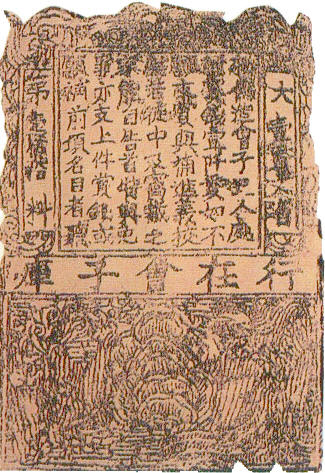 大壹貫文省
敕偽造會子犯人處
斬賞錢壹仟貫如不
願支賞與補進義校
尉若徒中及窩藏之
家能自告首特與免
罪亦支上件賞錢或
願補前項名目者聽
第料
行在會子庫